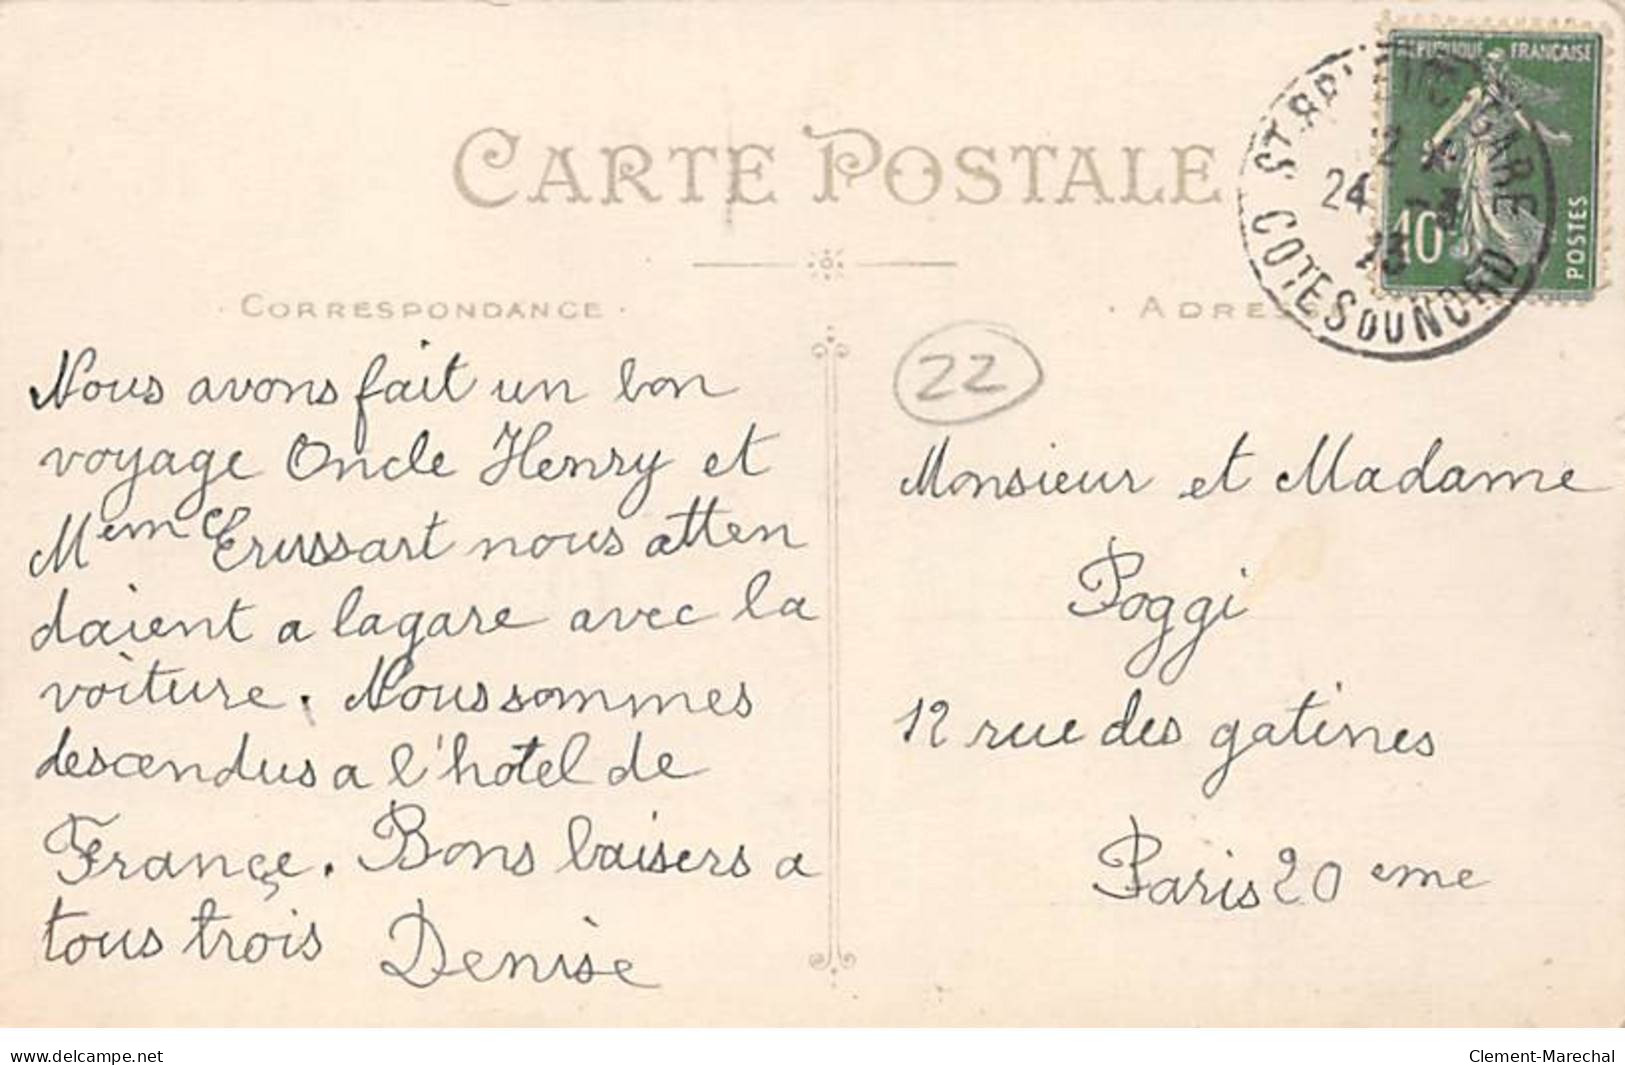 CARTE POSTALE
RÉPUBLIQUE FRANÇAISE
10
POSTES
GARE
24
COTES DU NORD
CORRESPONDANCE
22
Nous avons fait un bon
voyage Oncle Henry et
Mem Erussart nous atten
daient a lagare avec la
voiture. Nous sommes
descendus a l'hotel de
Françe. Bons baisers a
tous trois Denise
Monsieur et Madame
Poggi
12 rue des gatines
Paris 20 eme
delcampe.net
Clement-Marechal